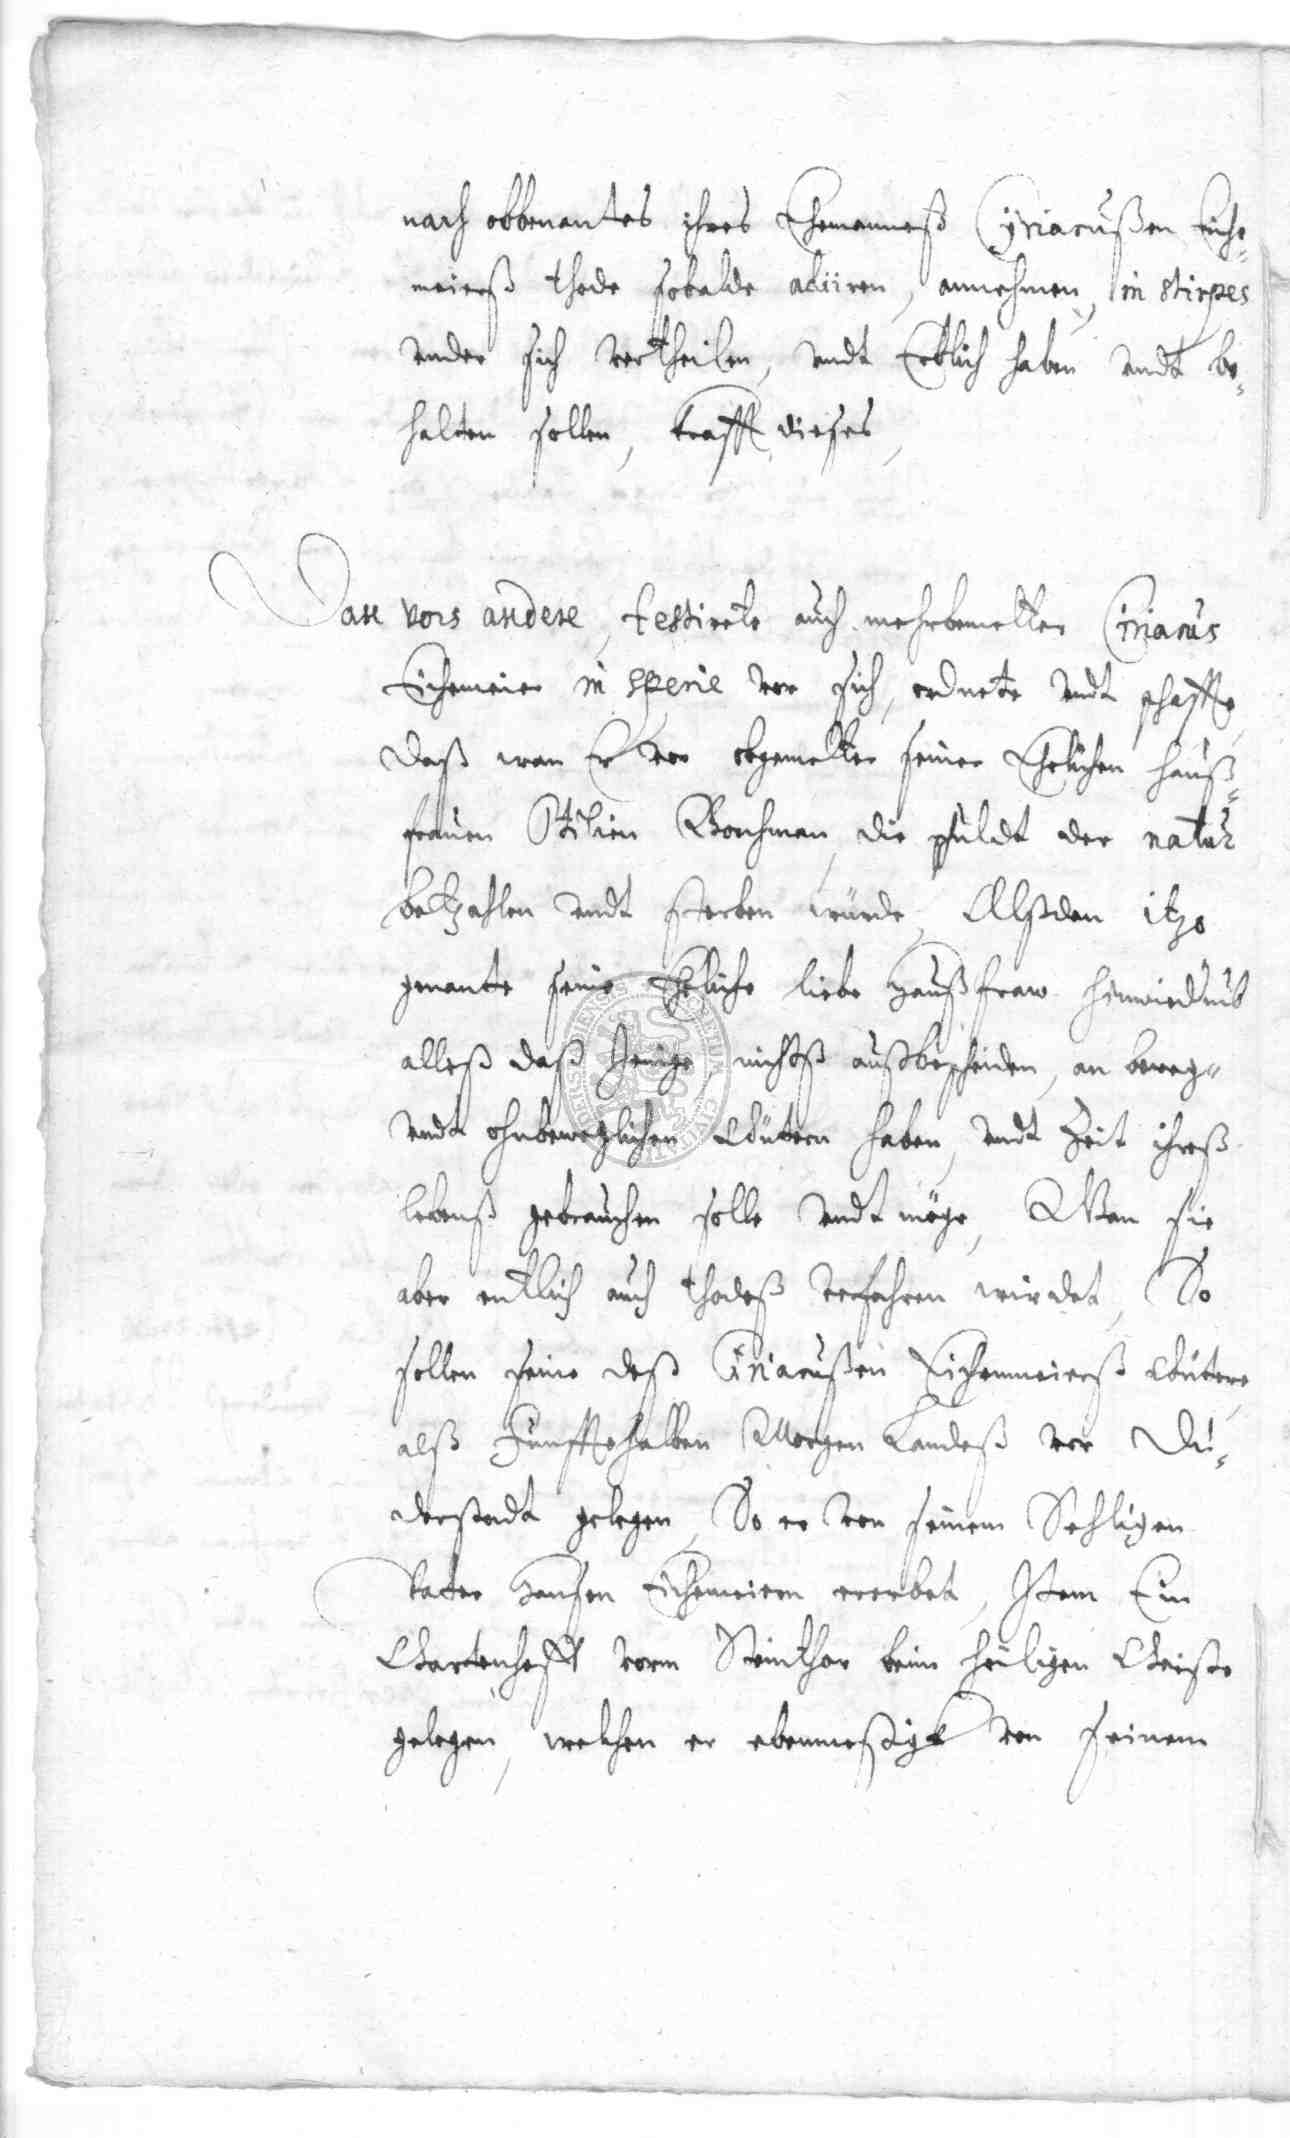 nach obbenantes ihres Ehemanneß Cyriacußen Eiche-
meierß thode sobalde adiiren, annehmen, in stirpes
under sich vertheilen, undt Erblich haben undt be-
halten sollen, krafft dieses,
Dan vors andere, testirete auch mehrbemelter Ciriacus
Eichemeier in specie vor sich, ordnete undt schaffte,
daß wan Er vor obgemelter seiner Ehelichen hauß-
frauen Otilien Borchman, die schuldt der natur
betzahlen undt sterben würde, Alßdan itzo
genante seine Eheliche liebe haußfraw hinwiederumb
alleß daß Jenige nichtß außbescheiden, an beweg-
undt ohnbeweglichen Gütern haben, undt Zeit ihreß
lebenß gebrauchen solle undt möge, Wan sie
aber entlich auch thodeß verfahren wirdet, So
sollen seine deß Ciriacußen Eichenmeierß Gütere,
alß Funfftehalben Morgen Landeß vor Du-
derstadt gelegen, So er von seinem Sehligen
Vater Hansen Eichemeiern ererbet, Item Ein
Gartenhofft vorm Steinthor beim heiligen Geiste
gelegen, welchen er ebenmeßigk von seinem